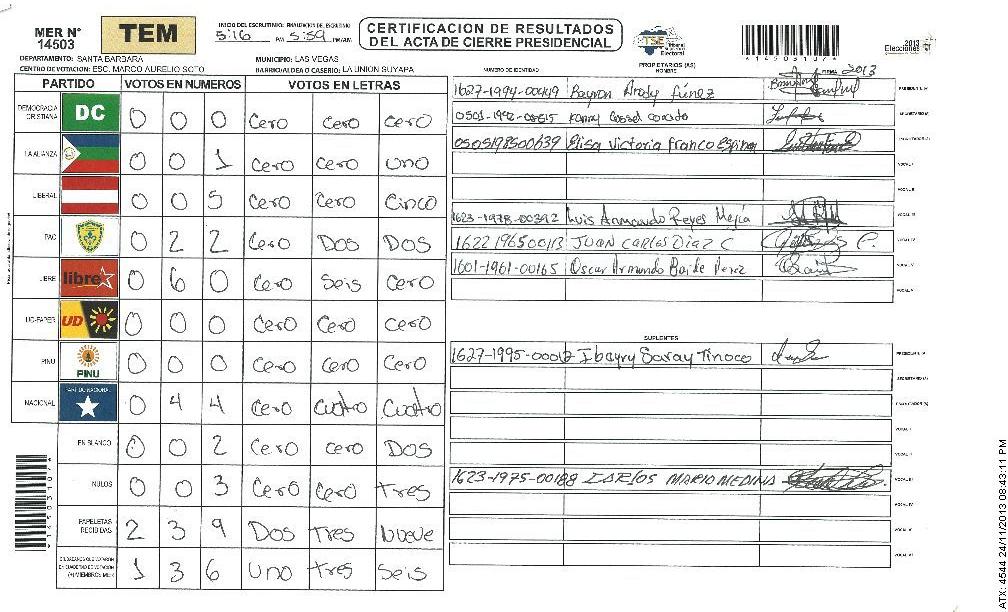 MER N° 14503
TEM
INICIO DEL ESCRUTINIO: FINALIZACION DEL ESCRUTINIO
5:16 PM 5:59 PM/AM
CERTIFICACION DE RESULTADOS
DEL ACTA DE CIERRE PRESIDENCIAL
TSE Tribunal Supremo Electoral
*1450310?*
2013
Elecciones
DEPARTAMENTO: SANTA BARBARA
MUNICIPIO: LAS VEGAS
CENTRO DE VOTACION: ESC. MARCO AURELIO SOTO
BARRIO/ALDEA O CASERIO: LA UNION SUYAPA
NUMERO DE IDENTIDAD
PROPIETARIOS (AS)
NOMBRE
FIRMA 2013
PARTIDO VOTOS EN NUMEROS VOTOS EN LETRAS
DEMOCRACIA CRISTIANA DC 0 0 0 Cero Cero Cero
LA ALIANZA 0 0 1 Cero Cero Uno
LIBERAL 0 0 5 Cero Cero Cinco
PAC 0 2 2 Cero Dos Dos
LIBRE libre 0 6 0 Cero Seis Cero
UD-FAPER UD 0 0 0 Cero Cero Cero
PINU PINU 0 0 0 Cero Cero Cero
NACIONAL PARTIDO NACIONAL 0 4 4 Cero Cuatro Cuatro
EN BLANCO 0 0 2 Cero cero Dos
NULOS 0 0 3 Cero Cero Tres
PAPELETAS RECIBIDAS 2 3 9 Dos Tres Nueve
CIUDADANOS QUE VOTARON EN CUADERNO DE VOTACIÓN (+) MIEMBROS MER 1 3 6 Uno Tres Seis
1627-1994-00449 Bayron Arody Fúnez PRESIDENTE (A)
SECRETARIO (A)
0505198500639 Elisa Victoria Franco Espinal ESCRUTADOR (A)
VOCAL I
VOCAL II
1623-1978-00392 Luis Armando Reyes Mejía VOCAL III
1622196500113 JUAN CARLOS Díaz C VOCAL IV
1601-1961-00165 Oscar Armando Perez VOCAL V
VOCAL VI
SUPLENTES
1627-1995-00012 Ibayry Saray Tinoco PRESIDENTE (A)
SECRETARIO (A)
ESCRUTADOR (A)
VOCAL I
VOCAL II
1623-1975-00188 CARLOS MARIO MEDINA VOCAL III
VOCAL IV
VOCAL V
VOCAL VI
ATX: 4544 24/11/2013 08:43:11 PM